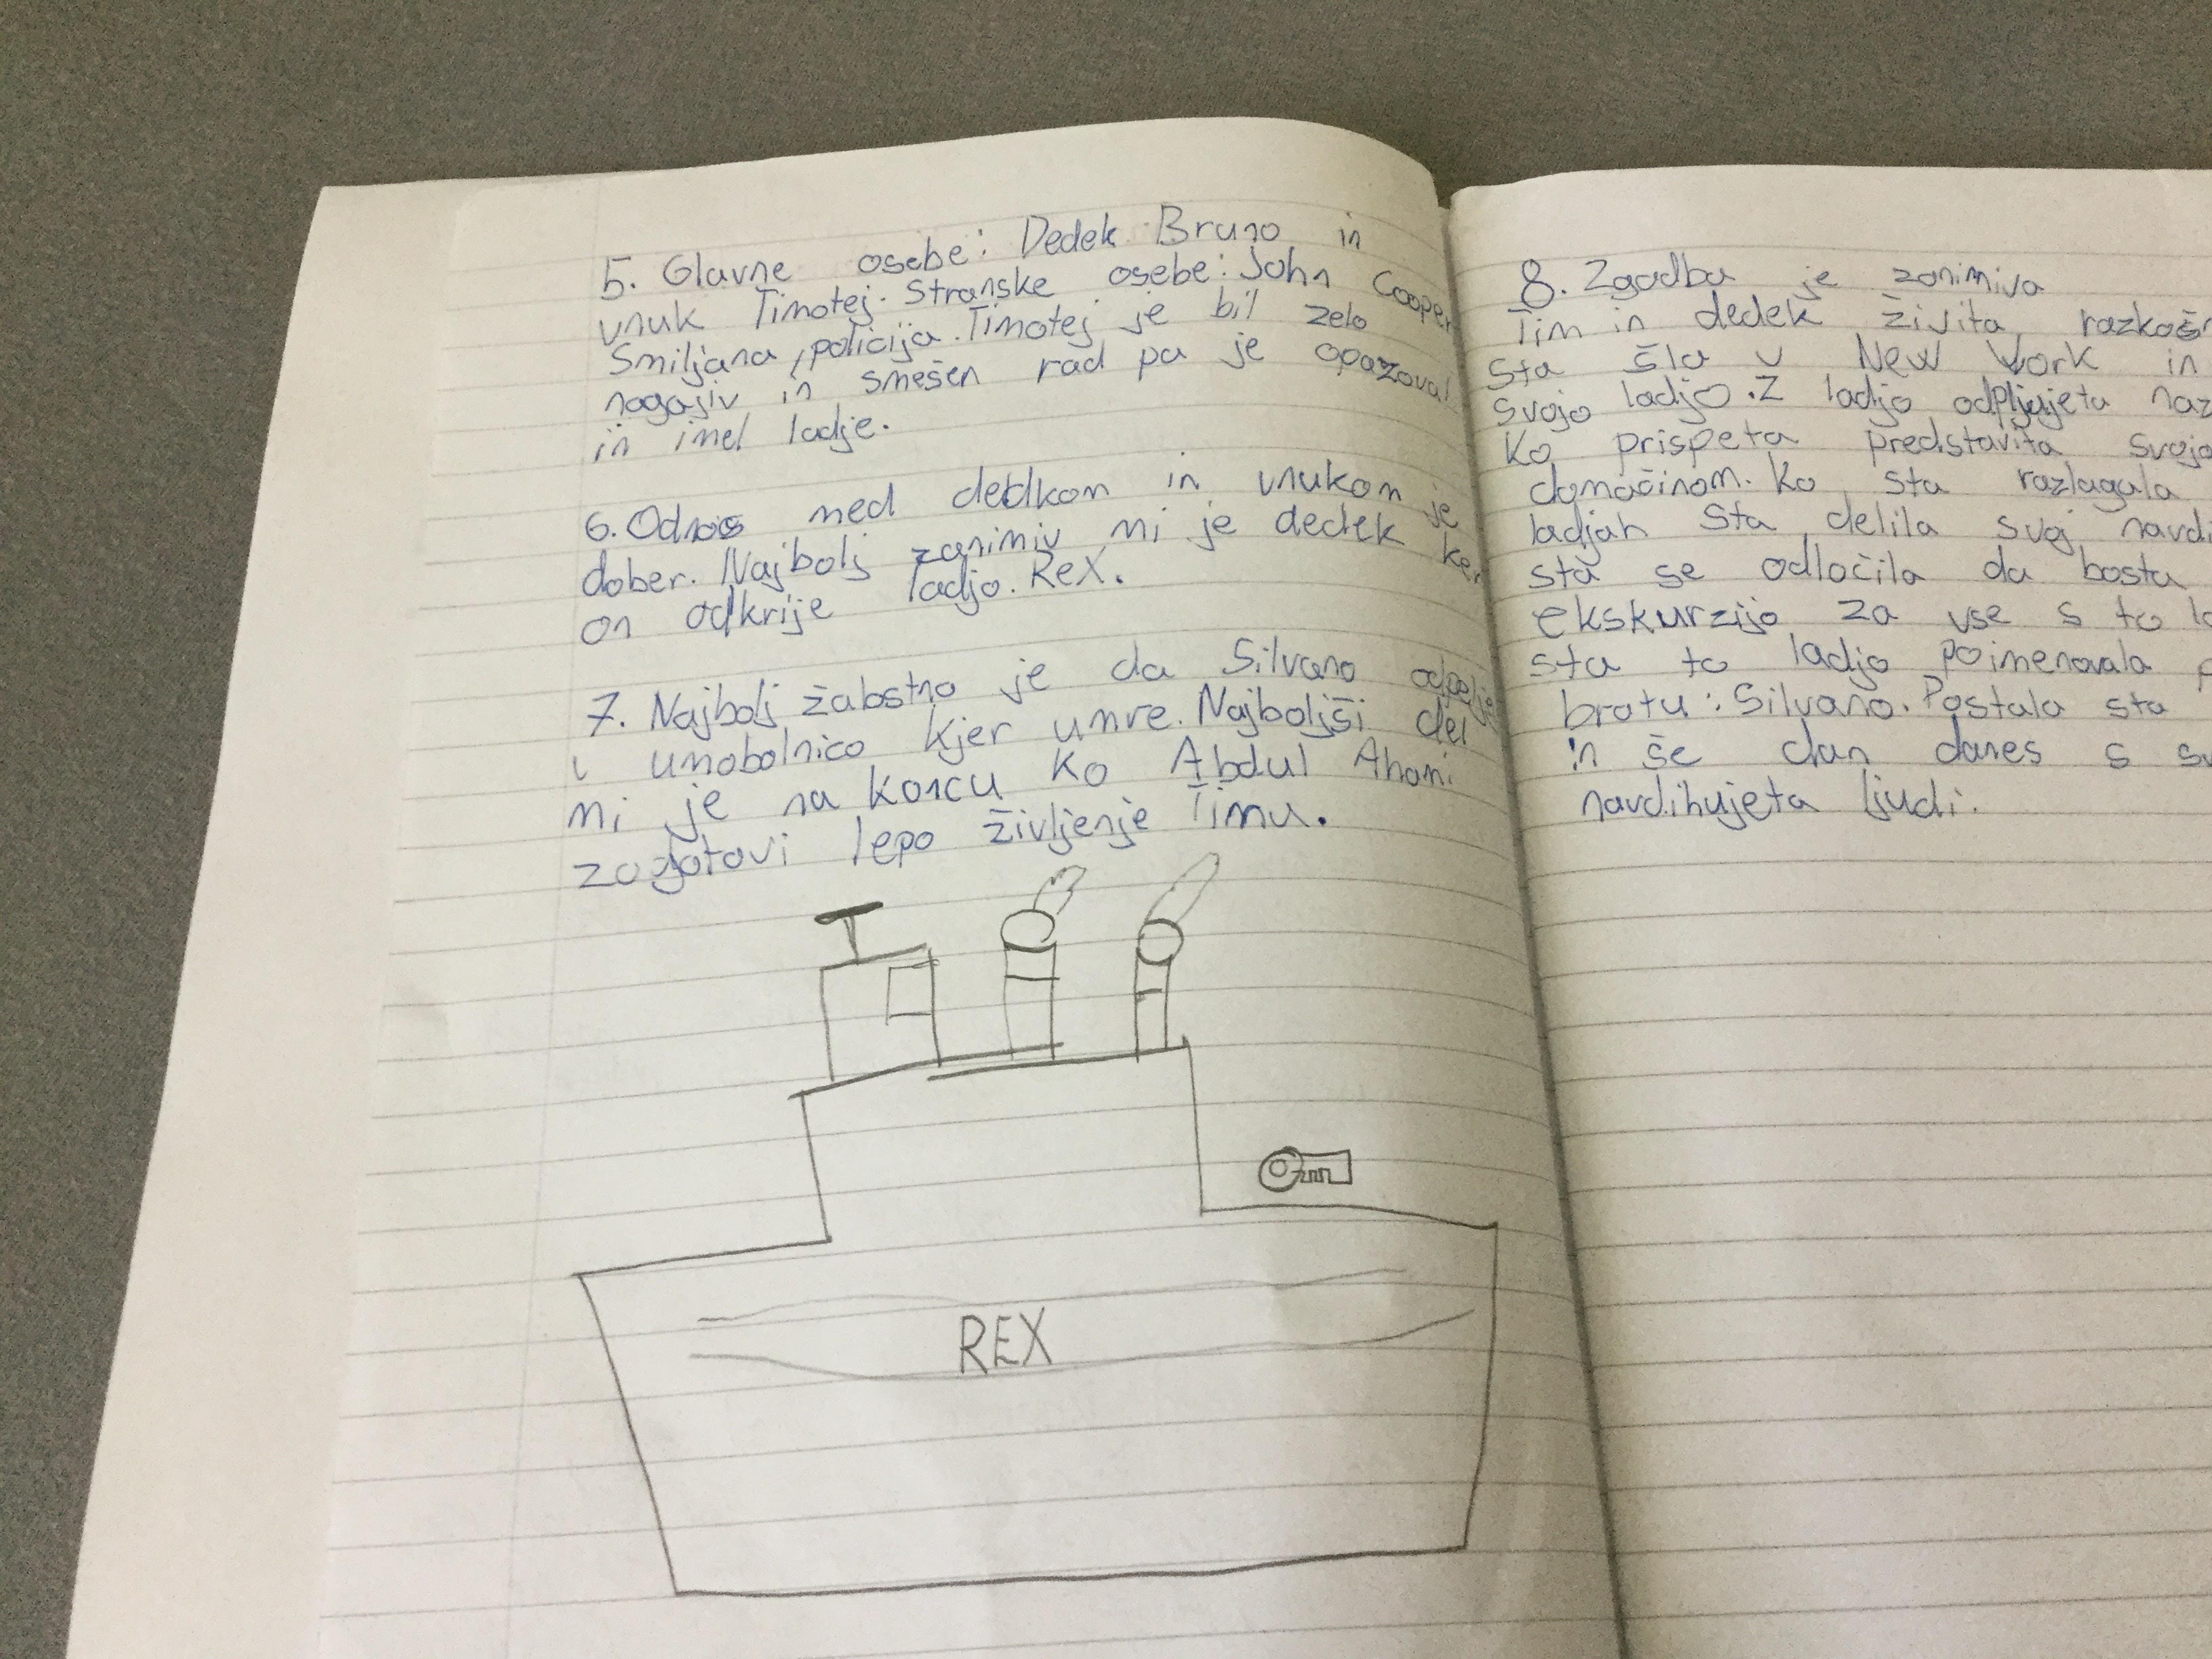 5. Glavne osebe: Dedek Bruno in
vnuk Timotej. Stranske osebe: John Cooper
Smiljana, policija. Timotej je bil zelo
nagajiv in smešen rad pa je opazoval
in imel ladje.
6. Odnos med dedkom in vnukom je
dober. Najbolj zanimiv mi je dedek ker
on odkrije ladjo. Rex.
7. Najbolj žalostno je da Silvano odpelje
v umobolnico kjer umre. Najboljši del
mi je na koncu ko Abdul Ahomi
zagotovi lepo življenje Timu.
REX
8. Zgodba je zanimiva
Tim in dedek živita
sta šla v New York in
svojo ladjo. Z ladjo odpljujeta
Ko prispeta predstavita
domačinom. Ko sta razlagala
ladjah sta delila svoj
sta se odločila da bosta
ekskurzijo za vse s to
sta to ladjo poimenovala
bratu: Silvano. Postala sta
in še dan danes s
navdihujeta ljudi.